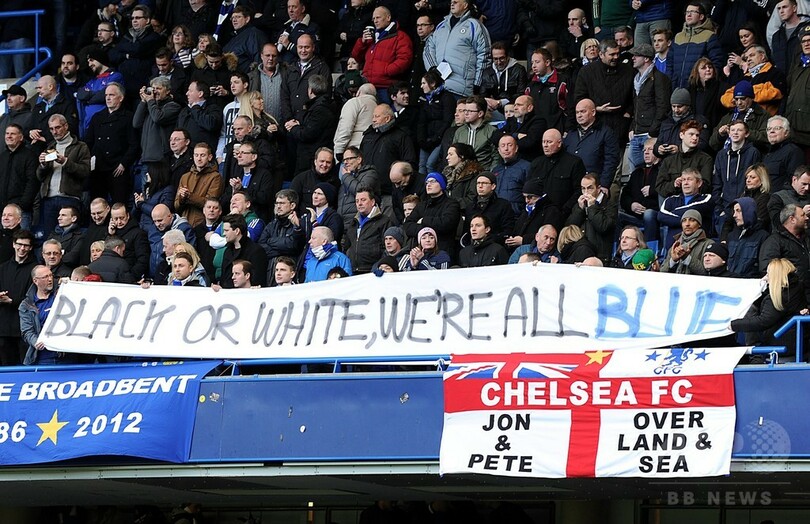 BLACK OR WHITE, WE'RE ALL BLUE
E BROADBENT
86 ★ 2012
CHELSEA FC
CFC
JON
& 
PETE
OVER
LAND &
SEA
BB NEWS